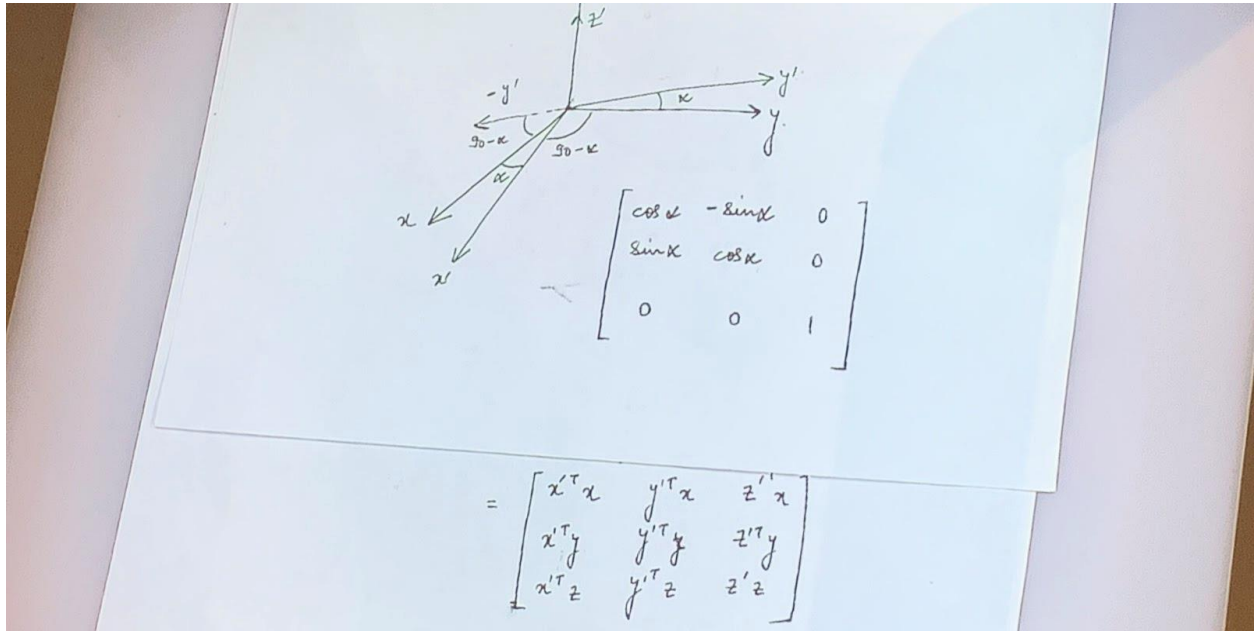 z'
-y'
y'
α
y
90-α
90-α
α
x
x'
cosα -sinα 0
sinα cosα 0
0 0 1
= x'ᵀx y'ᵀx z'ᵀx
x'ᵀy y'ᵀy z'ᵀy
x'ᵀz y'ᵀz z'z